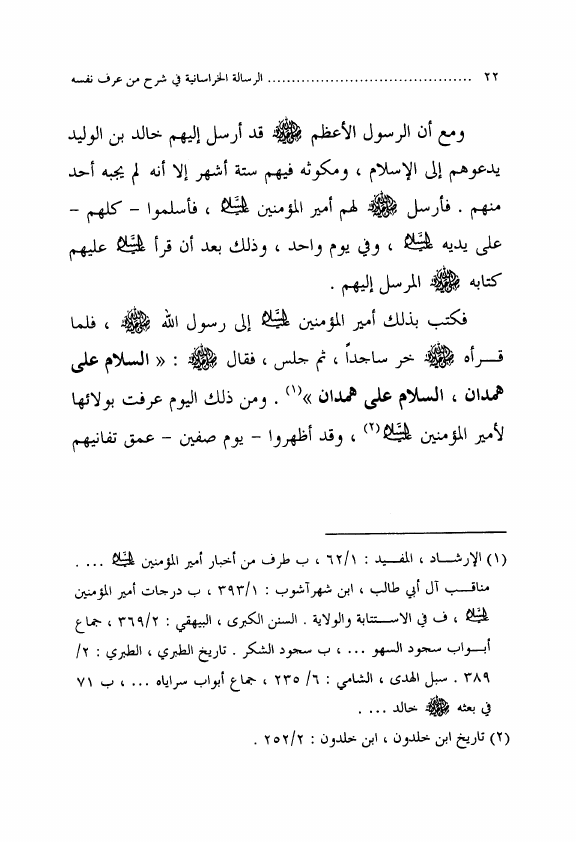 ٢٢ ........................................... الرسالة الخراسانية في شرح من عرف نفسه
ومع أن الرسول الأعظم ﷺ قد أرسل إليهم خالد بن الوليد
يدعوهم إلى الإسلام ، ومكوثه فيهم ستة أشهر إلا أنه لم يجبه أحد
منهم . فأرسل ﷺ لهم أمير المؤمنين عليه السلام ، فأسلموا – كلهم –
على يديه عليه السلام ، وفي يوم واحد ، وذلك بعد أن قرأ عليه السلام عليهم
كتابه ﷺ المرسل إليهم .
فكتب بذلك أمير المؤمنين عليه السلام إلى رسول الله ﷺ ، فلما
قـــرأه ﷺ خر ساجداً ، ثم جلس ، فقال ﷺ : « السلام على
همدان ، السلام على همدان »(١) . ومن ذلك اليوم عرفت بولائها
لأمير المؤمنين عليه السلام(٢) ، وقد أظهروا – يوم صفين – عمق تفانيهم
(١) الإرشـــاد ، المفـــيد : ٦٢/١ ، ب طرف من أخبار أمير المؤمنين عليه السلام ... .
مناقـــب آل أبي طالب ، ابن شهرآشوب : ٣٩٣/١ ، ب درجات أمير المؤمنين
عليه السلام ، ف في الاســـتنابة والولاية . السنن الكبرى ، البيهقي : ٣٦٩/٢ ، جماع
أبـــواب سجود السهو ... ، ب سجود الشكر . تاريخ الطبري ، الطبري : ٢/
٣٨٩ . سبل الهدى ، الشامي : ٦/ ٢٣٥ ، جماع أبواب سراياه ... ، ب ٧١
في بعثه ﷺ خالد ... .
(٢) تاريخ ابن خلدون ، ابن خلدون : ٢٥٢/٢ .